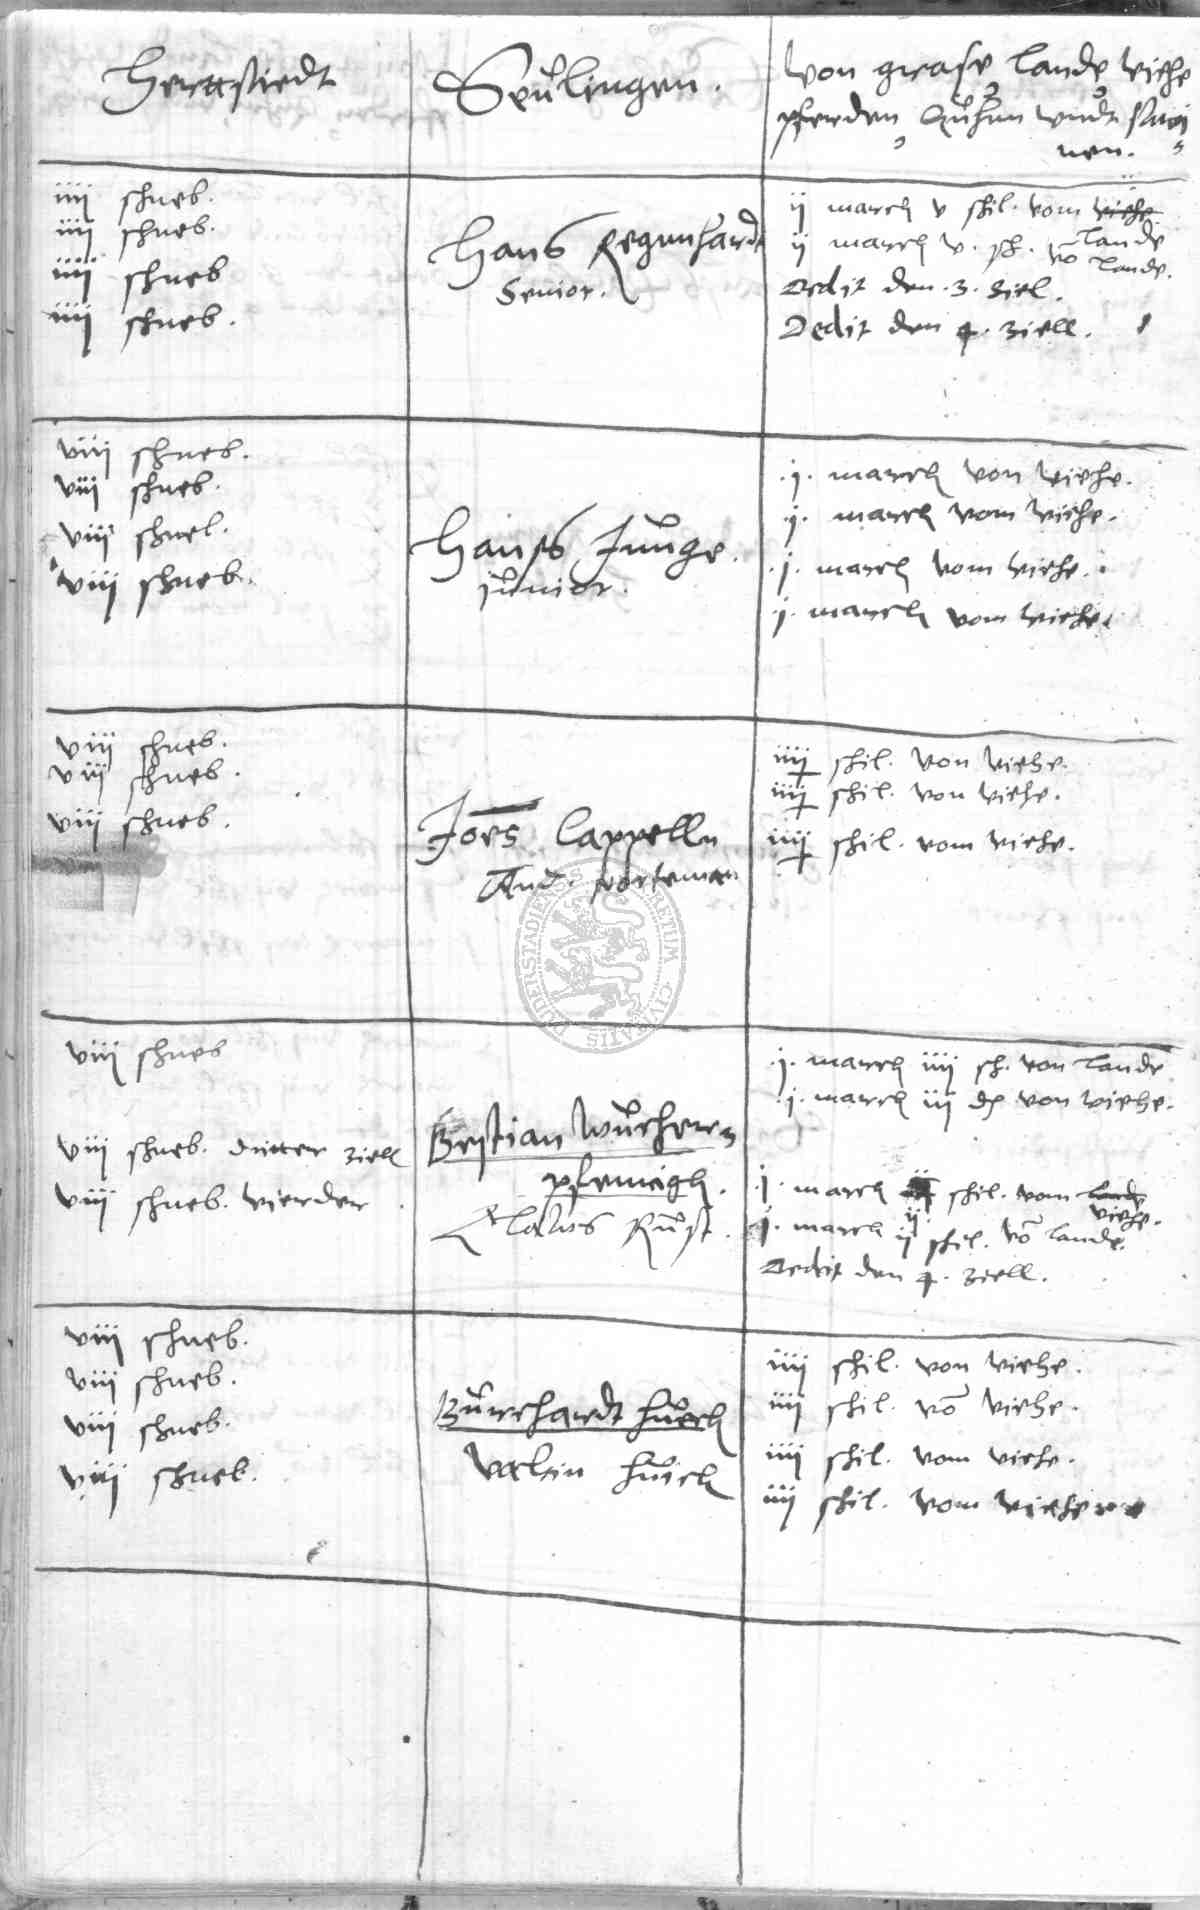 Herttstiedt
Seulingen.
Von grase Lande Viehe
pferden Kuhen vndt schwei
nen.
iiij schneb.
iiij schneb.
iiij schneb
iiij schneb.
Hans Regenhardt
Senior.
ij march v schil. vom viehe
Lande
ij march v. sch. vō Lande.
Dedit den .3. Ziel.
Dedit den 4. Ziell.
viij schneb.
viij schneb.
viij schneb.
viij schneb.
Hanss Junge.
junior.
.j. march von viehe.
.j. march vom viehe.
.j. march vom viehe.
.j. march vom viehe.
viij schneb.
viij schneb.
viij schneb.
Joēs Cappelln
And. Porteman
iiij schil. von viehe.
iiij schil. von viehe.
iiij schil. vom viehe.
SIGILLUM CIVITATIS
viij schneb
viij schneb. dritter Ziell
viij schneb. vierder
Bestian Wucherer
pfennigk.
Clawes Rust.
.j. march iiij sch. von Lande
.j. march iij von viehe.
j. march schil. vom Lande
viehe.
j. march ij schil. vō Lande.
Dedit den 4. Ziell.
viij schneb.
viij schneb.
viij schneb.
viij schneb.
Burchardt Huech
Valtin Huich
iiij schil. von viehe.
iiij schil. vō viehe.
iiij schil. vom viehe.
iiij schil. vom viehe